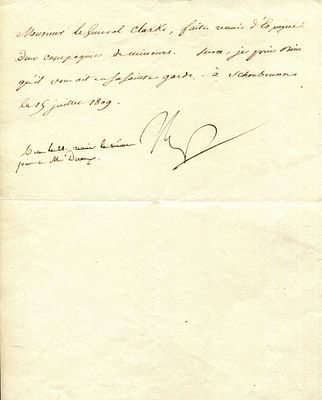 Monsieur le General Clarke, faites revenir d'Espagne
deux compagnies de mineurs. Sur ce, je prie Dieu
qu'il vous ait en sa sainte garde. à Schonbrunn
le 15 juillet 1809.
Np
le même
pour M.